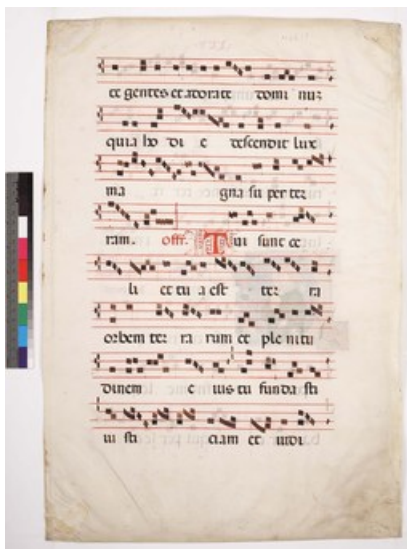 te gentes et adorate domi num
quia ho di e descendit lux
ma gna su per ter
ram. offr. Tui sunt ce
li et tu a est ter ra
orbem ter ra rum et ple nitu
dinem e ius tu funda sti
iu sti ciam et iudi